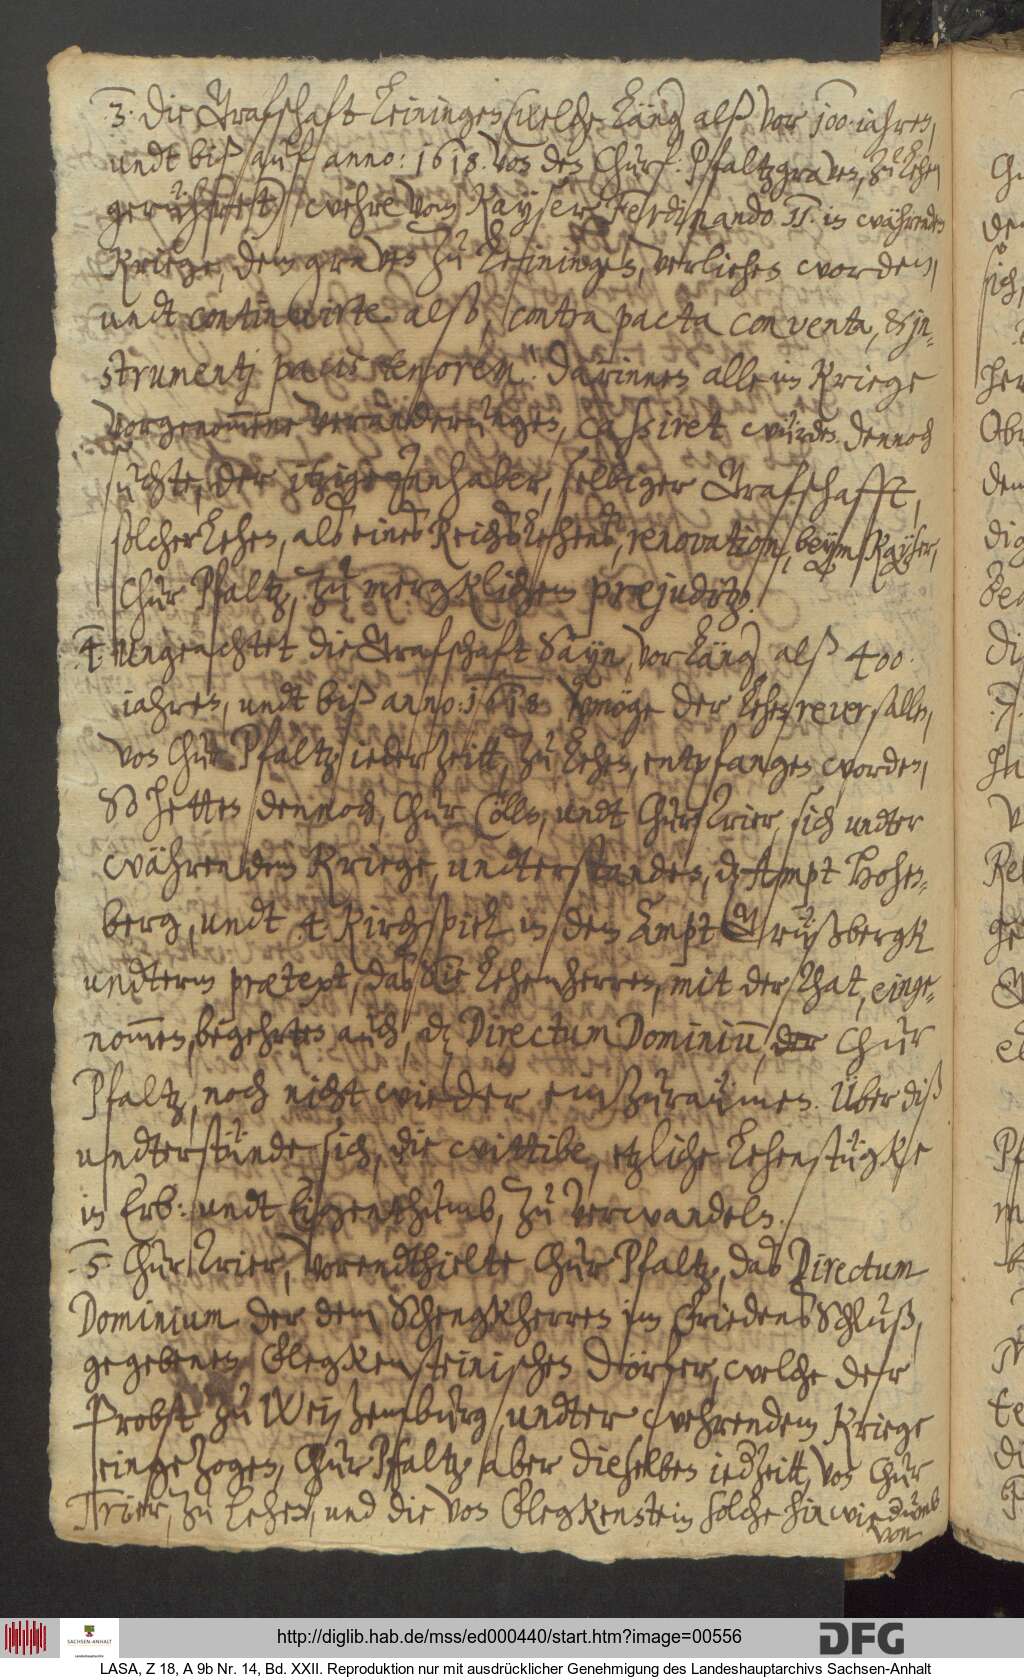 3. die Grafschaft Leiningen (welche läng(er) alß vor 100 iahren,
undt biß auf anno: 1618. von den Churf: Pfaltzgraven, zu lehen
gerühret) wehre vom Kayser Ferdinando II. in währenden
Kriege, dem graven zu Leiningen, verliehen worden,
undt continuirte alß, contra pacta conventa, & in-
strumentj pacis tenorem: darinnen alle in Kriege
Vorgenom̅ene veränderungen, cassiret würden. dennoch
suchte, der itzige Innhaber, selbiger Grafschafft,
solcher Lehen, als eines Reichs Lehens, renovation, beym Kayser,
Chur Pfaltz, zu mergklichem præjuditz.
4. Ungeachtet die Grafschaft Sayn, vor läng(er) alß 400.
iahren, undt biß anno: 1618. vermöge der Lehen reversallen,
von Chur Pfaltz iederzeitt, zu Lehen, entpfangen worden,
So hetten dennoch, Chur Cölln, undt Chur Trier, sich undter
währendem Kriege, undterstanden, dz Ampt Hohen-
berg, undt 4 Kirchspiel in dem Ampt Freüßbergk
undterm prætext, das Sie Lehenherren, mit der that, einge-
nom̅en, begehrten auch, dz Directum Dominiu̅, der Chur
Pfaltz, noch nicht wieder einzuraümen. Über diß
undterstünde sich, die wittibe, etzliche Lehenstügke
in Erb: undt Eigenthumb, zu verwandeln.
5. Chur Trier, Vorendthielte Chur Pfaltz, das Directum
Dominium der dem Schengkherren im Friedens Schluß,
gegebenen Flegkensteinischen Dörfer, welche der
Probst zu Weißemburg, undter wehrendem Kriege
eingezogen, Chur Pfaltz aber dieselben iedzeitt, von Chur
Trier, zu Lehen, und die von Flegkenstein solche hinwiedumb
von
http://diglib.hab.de/mss/ed000440/start.htm?image=00556
SACHSEN-ANHALT
DFG
LASA, Z 18, A 9b Nr. 14, Bd. XXII. Reproduktion nur mit ausdrücklicher Genehmigung des Landeshauptarchivs Sachsen-Anhalt